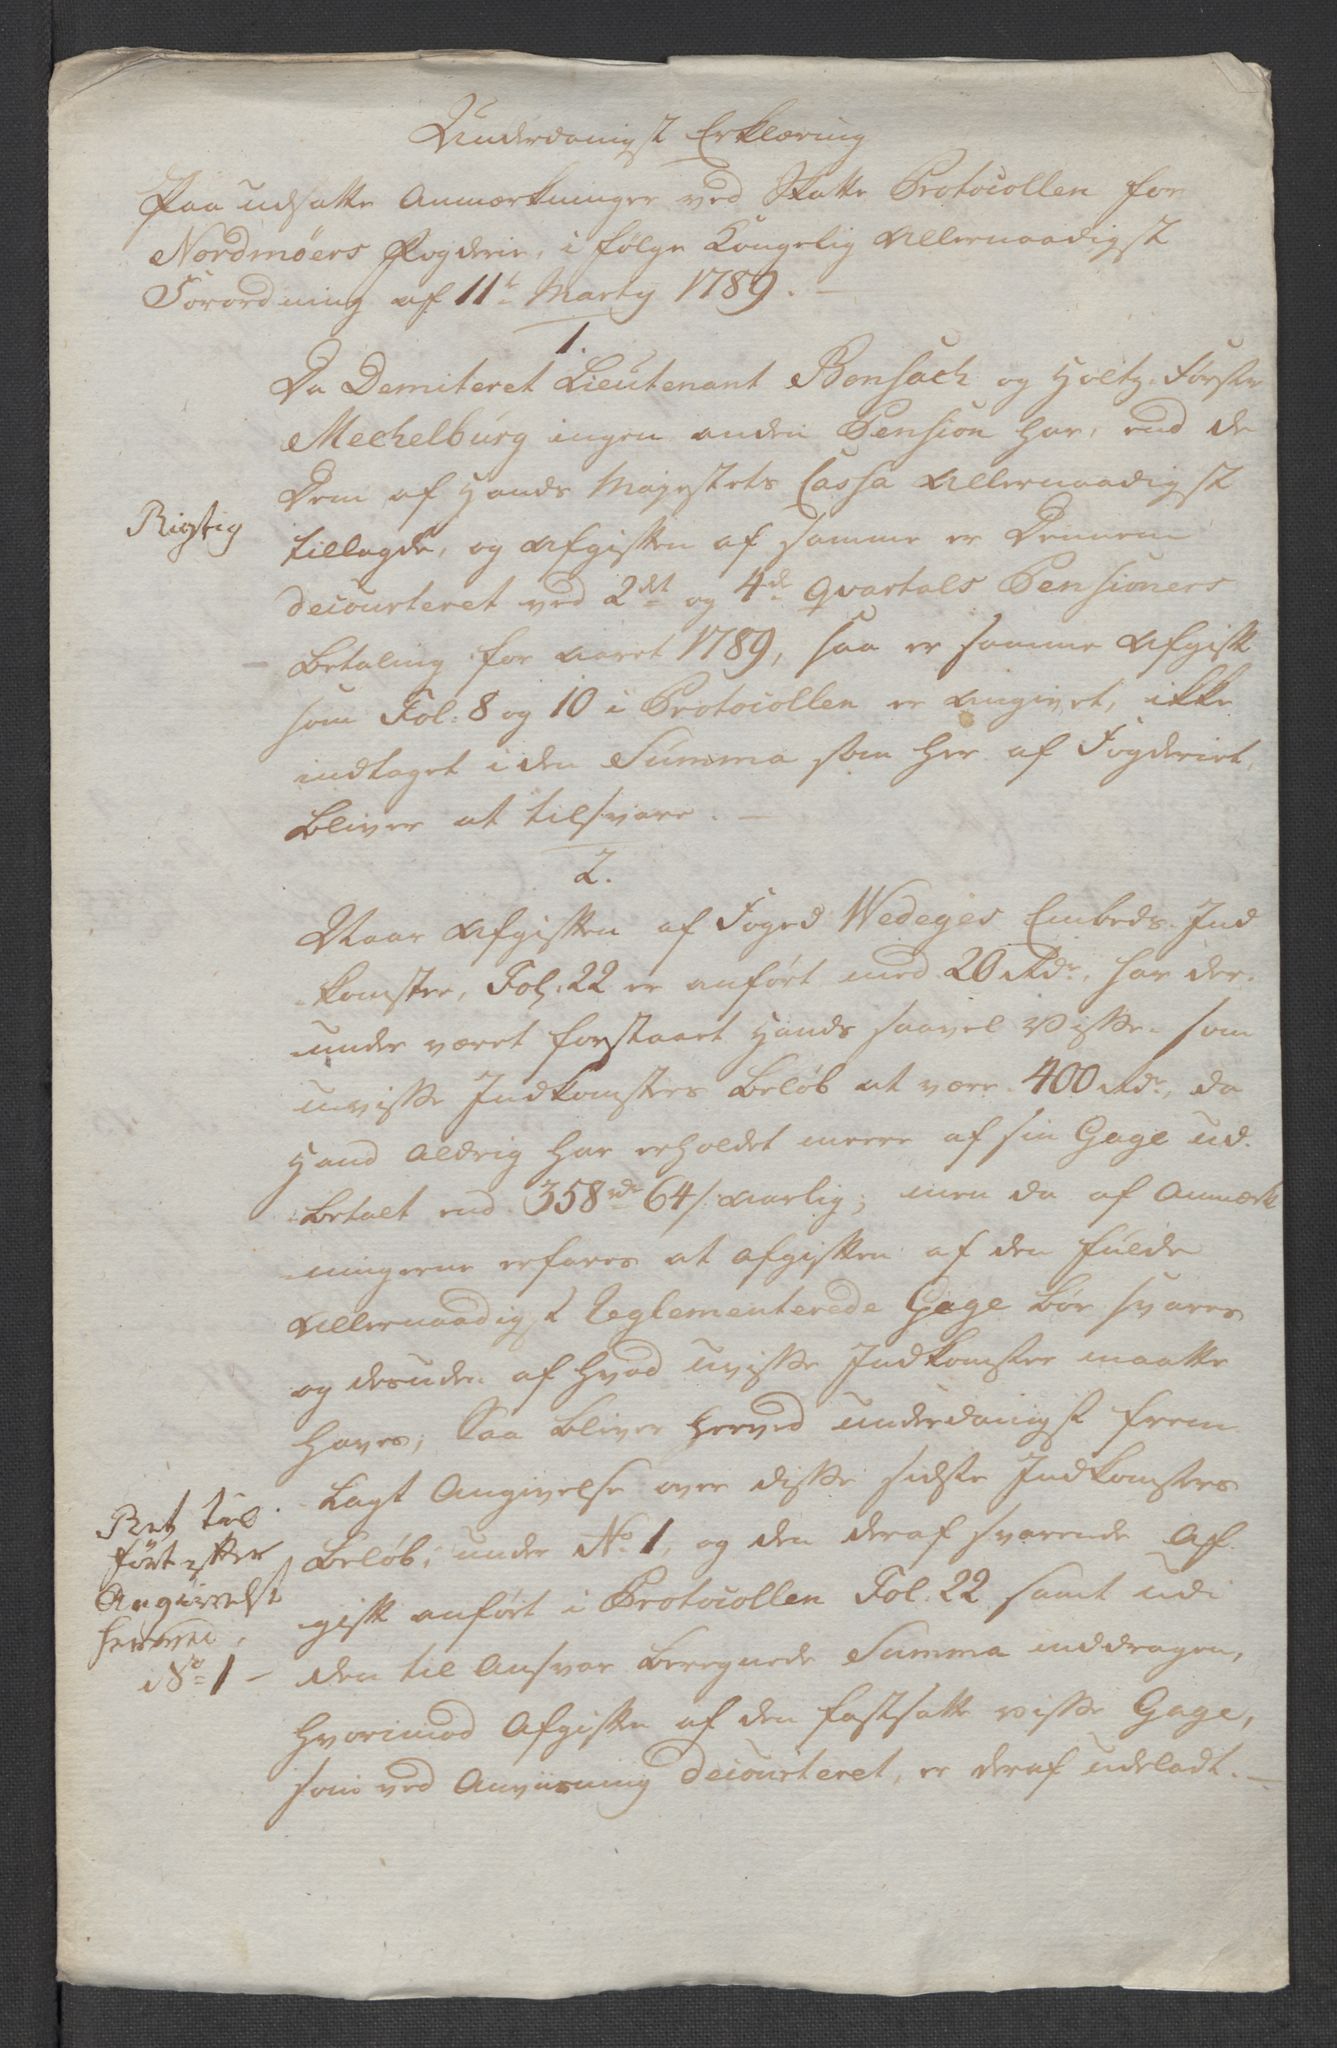 Underdanigst Erklæring
Paa udsatte Anmærkninger ved Skatte Protocollen for
Nordmøers Fogderie, i følge Kongelig Allernaadigst
Forordning af 11te Marty 1789. —
1.
Da Demiteret Lieutenant Bonsach og Holtz-Førster
Mechelburg ingen anden Pension har, end de
Dem af Hands Majestets Cassa Allernaadigst
Rigtig
tillagde, og Afgiften af samme er Dennem
decourteret ved 2det og 4de Qvartals Pensioners
Betaling for Aaret 1789, saa er samme Afgift
som Fol: 8 og 10 i Protocollen er Angivet, ikke
indtaget i den Summa som her af Fogderiet,
bliver at tilsvare. —
2.
Naar Afgiften af Foged Wedeges Embeds-Ind
komster, Fol: 22 er anført med 20 Rdr, har der-
under været forstaaet Hands saavel Visse- som
uvisse Indkomsters Beløb at være 400 Rdr, da
Hand Aldrig har erholdet meere af sin Gage ud-
betalt end 358 rdr 64 s. Aarlig; men da af Anmærk
ningerne erfares at Afgiften af den fulde
Allernaadigst Reglementerede Gage bør svares
og desuden af hvad uvisse Indkomster maatte
haves; Saa bliver herved underdanigst frem
lagt Angivelse over disse sidste Indkomsters
Ret til
Beløb, under No 1, og den deraf svarende Af-
ført efter
Angivelse
gift anført i Protocollen Fol. 22 samt udi
herved,
den til Ansvar beregnede Summa inddragen,
No 1 —
hvorimod Afgiften af den fastsatte visse Gage,
som ved Anviisning decourteret, er deraf udeladt. —